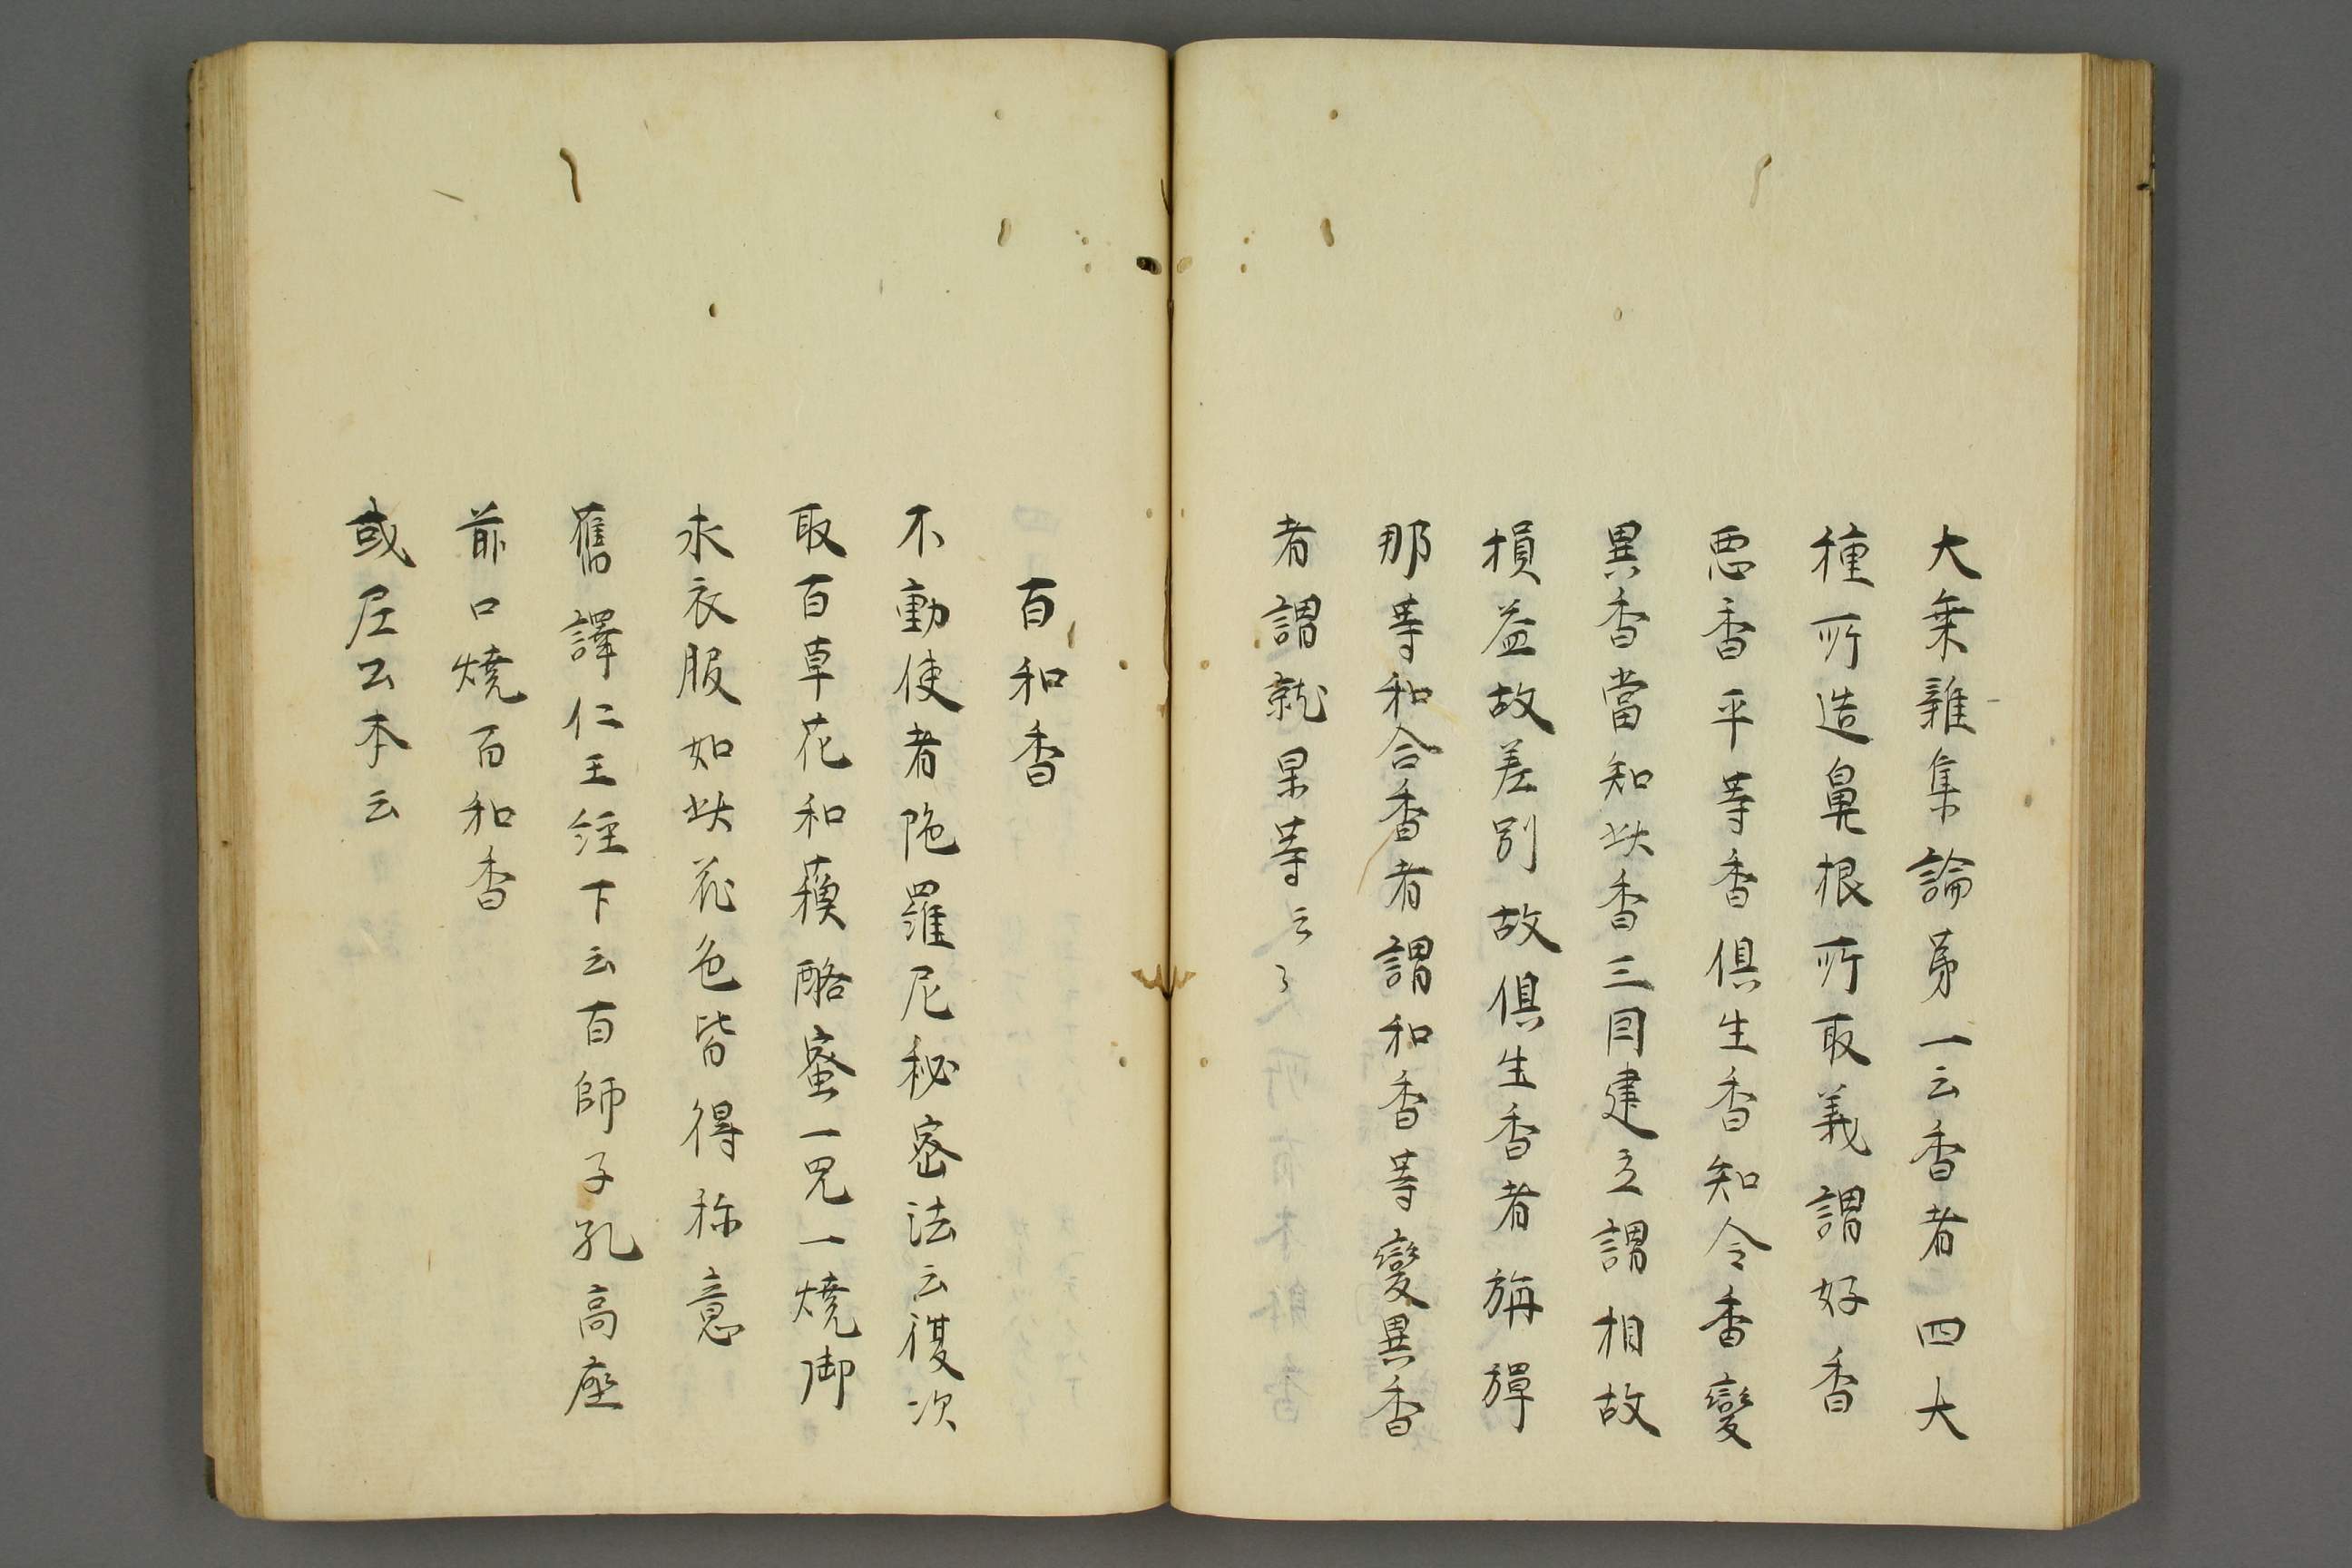 大乗雜集論第一云香者四大
種所造鼻根所取義謂好香
悪香平等香俱生香和合香變
異香當知此香三因建立謂相故
損益故差別故俱生香者旃彈
那等和合香者謂和香等變異香
者謂就果等云々
百和香
不動使者陁羅尼秘密法云復次
取百草花和蘓酪蜜一咒一燒御
求衣服如此花色皆得称意
舊譯仁王經下云百師子孔高座
前口燒百和香
或疋公本云